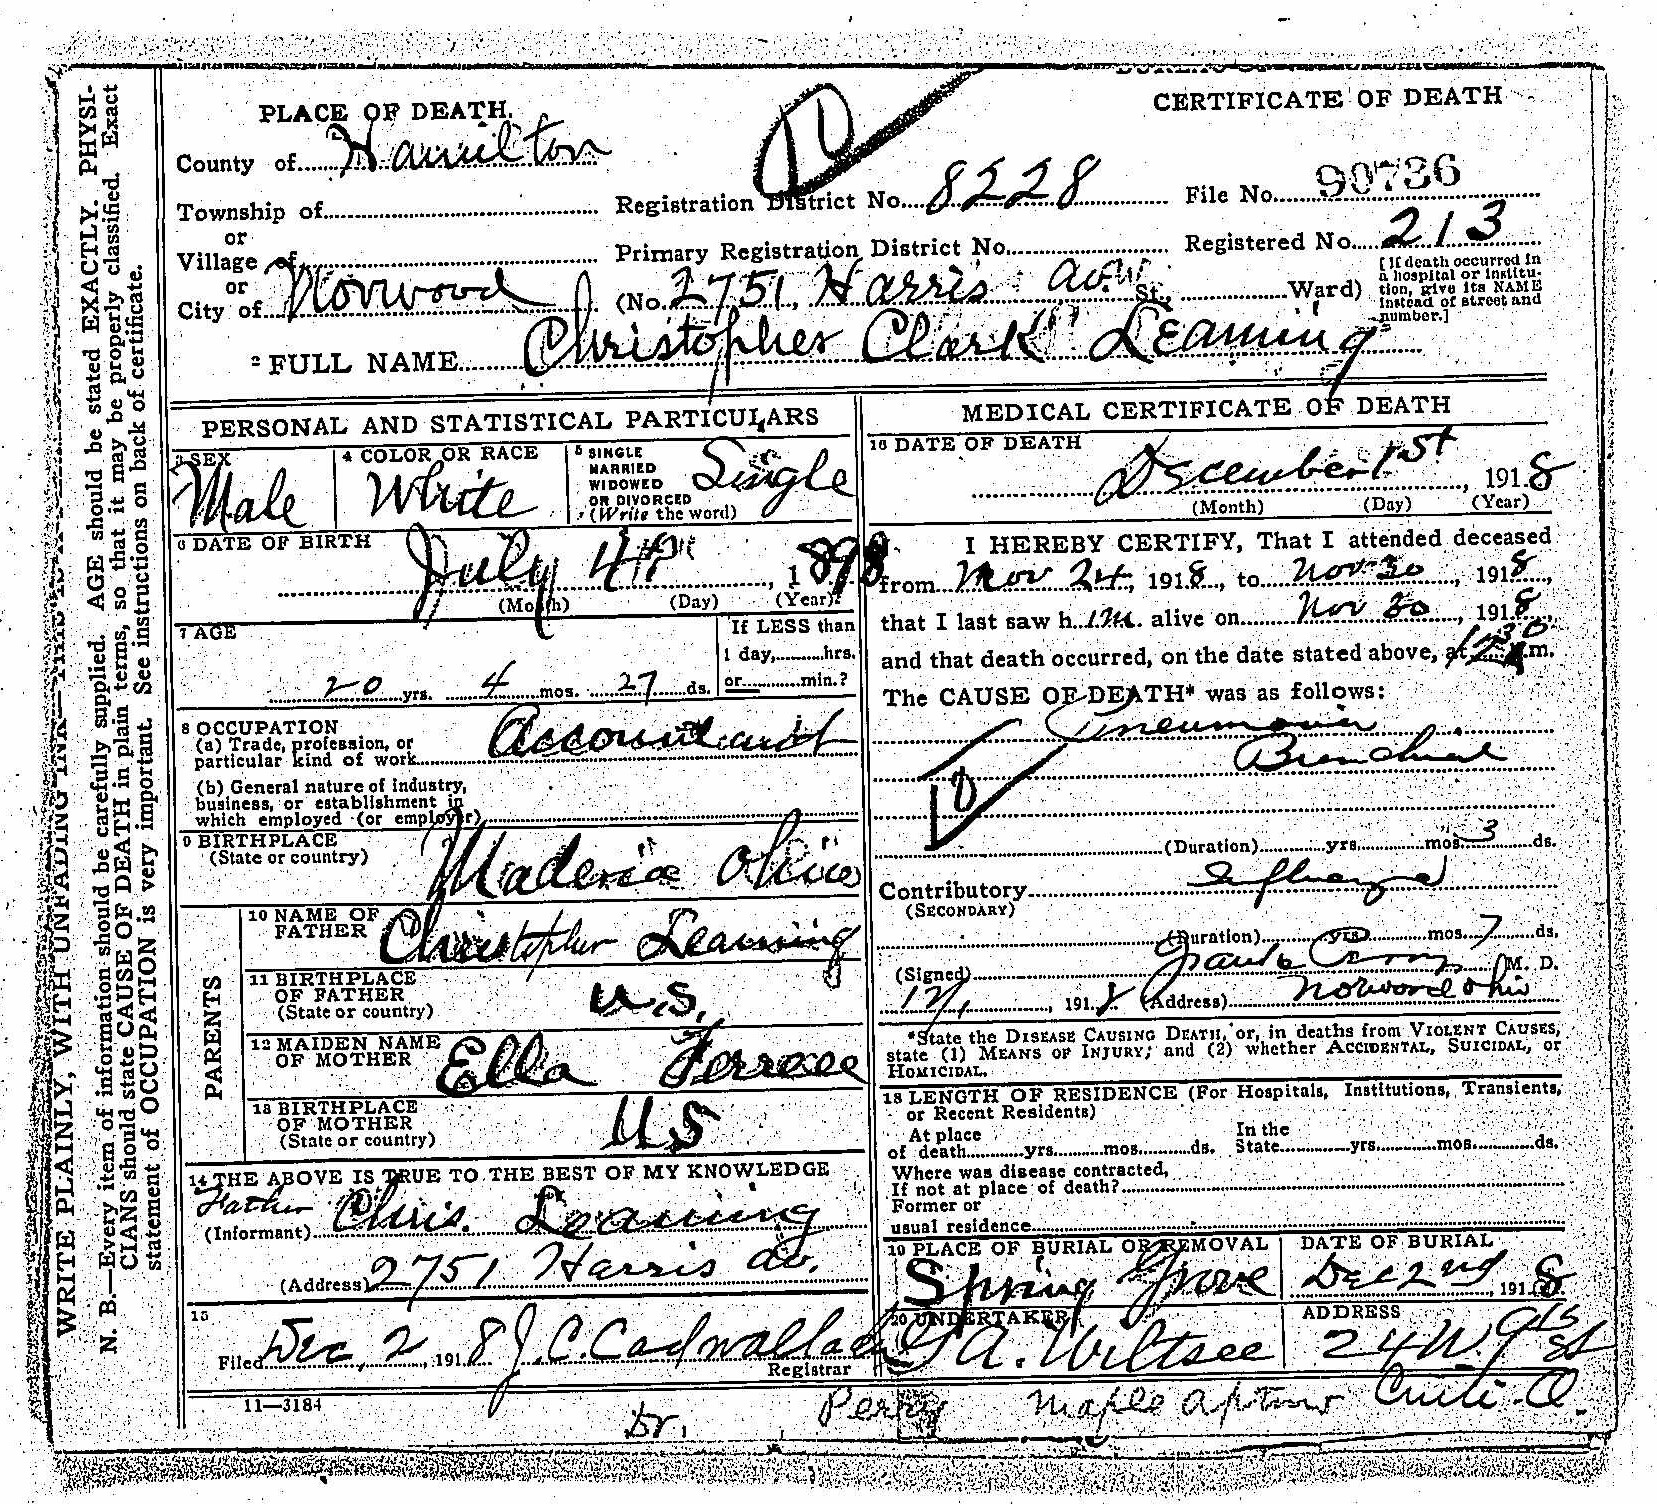 CERTIFICATE OF DEATH
PLACE OF DEATH.
County of Hamilton
Township of
Registration District No. 8228 File No. 90736
or
Village of
Primary Registration District No. Registered No. 213
or
City of Norwood (No. 2751, Harris av. St., Ward)
[If death occurred in
a hospital or institu-
tion, give its NAME
instead of street and
number.]
2 FULL NAME Christopher Clark Leaming
PERSONAL AND STATISTICAL PARTICULARS
3 SEX
Male
4 COLOR OR RACE
White
5 SINGLE
MARRIED
WIDOWED
OR DIVORCED
(Write the word)
Single
6 DATE OF BIRTH
July 4th, 1898
(Month) (Day) (Year)
7 AGE
20 yrs. 4 mos. 27 ds.
If LESS than
1 day, hrs.
or min.?
8 OCCUPATION
(a) Trade, profession, or
particular kind of work Accountant
(b) General nature of industry,
business, or establishment in
which employed (or employer)
9 BIRTHPLACE
(State or country)
Maderia Ohio
PARENTS
10 NAME OF
FATHER
Christopher Leaming
11 BIRTHPLACE
OF FATHER
(State or country)
U.S.
12 MAIDEN NAME
OF MOTHER
Ella
13 BIRTHPLACE
OF MOTHER
(State or country)
U.S
14 THE ABOVE IS TRUE TO THE BEST OF MY KNOWLEDGE
Father
(Informant) Chris. Leaming
(Address) 2751 Harris av.
15
Filed Dec, 2, 1918 J.C. Cadwallader
Registrar
11—3184
MEDICAL CERTIFICATE OF DEATH
16 DATE OF DEATH
December 1st, 1918
(Month) (Day) (Year)
I HEREBY CERTIFY, That I attended deceased
from Nov 24, 1918, to Nov 30, 1918,
that I last saw him alive on Nov 30, 1918,
and that death occurred, on the date stated above, at 12 30 m.
The CAUSE OF DEATH* was as follows:
Pneumonia
Bronchial
(Duration) yrs. mos. 3 ds.
Contributory Influenza
(SECONDARY)
(Duration) yrs. mos. 7 ds.
(Signed) M. D.
12/1, 1918 (Address) Norwood Ohio
*State the DISEASE CAUSING DEATH, or, in deaths from VIOLENT CAUSES,
state (1) MEANS OF INJURY; and (2) whether ACCIDENTAL, SUICIDAL, or
HOMICIDAL.
18 LENGTH OF RESIDENCE (For Hospitals, Institutions, Transients,
or Recent Residents)
At place
of death yrs. mos. ds.
In the
State yrs. mos. ds.
Where was disease contracted,
If not at place of death?
Former or
usual residence
19 PLACE OF BURIAL OR REMOVAL
Spring Grove
DATE OF BURIAL
Dec 2nd, 1918
20 UNDERTAKER
A. Wiltsee
ADDRESS
24 W. 9th St
Cinti. O.
Dr. Perry Maple
WRITE PLAINLY, WITH UNFADING INK
N. B.—Every item of information should be carefully supplied. AGE should be stated EXACTLY. PHYSI-
CIANS should state CAUSE OF DEATH in plain terms, so that it may be properly classified. Exact
statement of OCCUPATION is very important. See instructions on back of certificate.